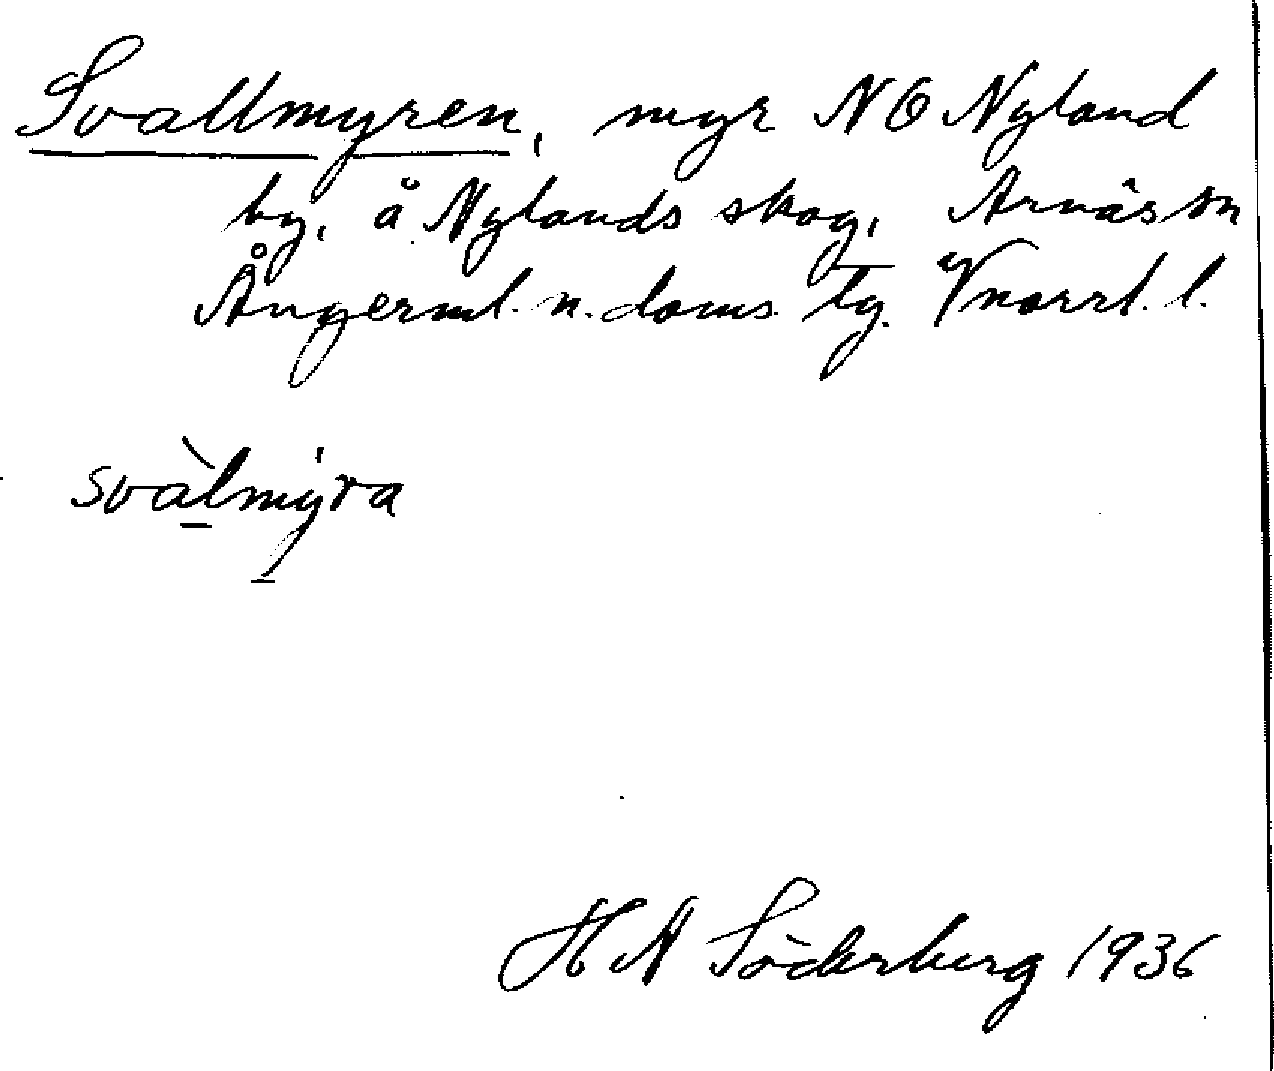 Svallmyren, myr NÖ Nyland
by, å Nylands skog, Arnäs sn
Ångerml. n. doms. tg. Vnorrl. l.
svàlmy̍ra
H A Söderberg 1936